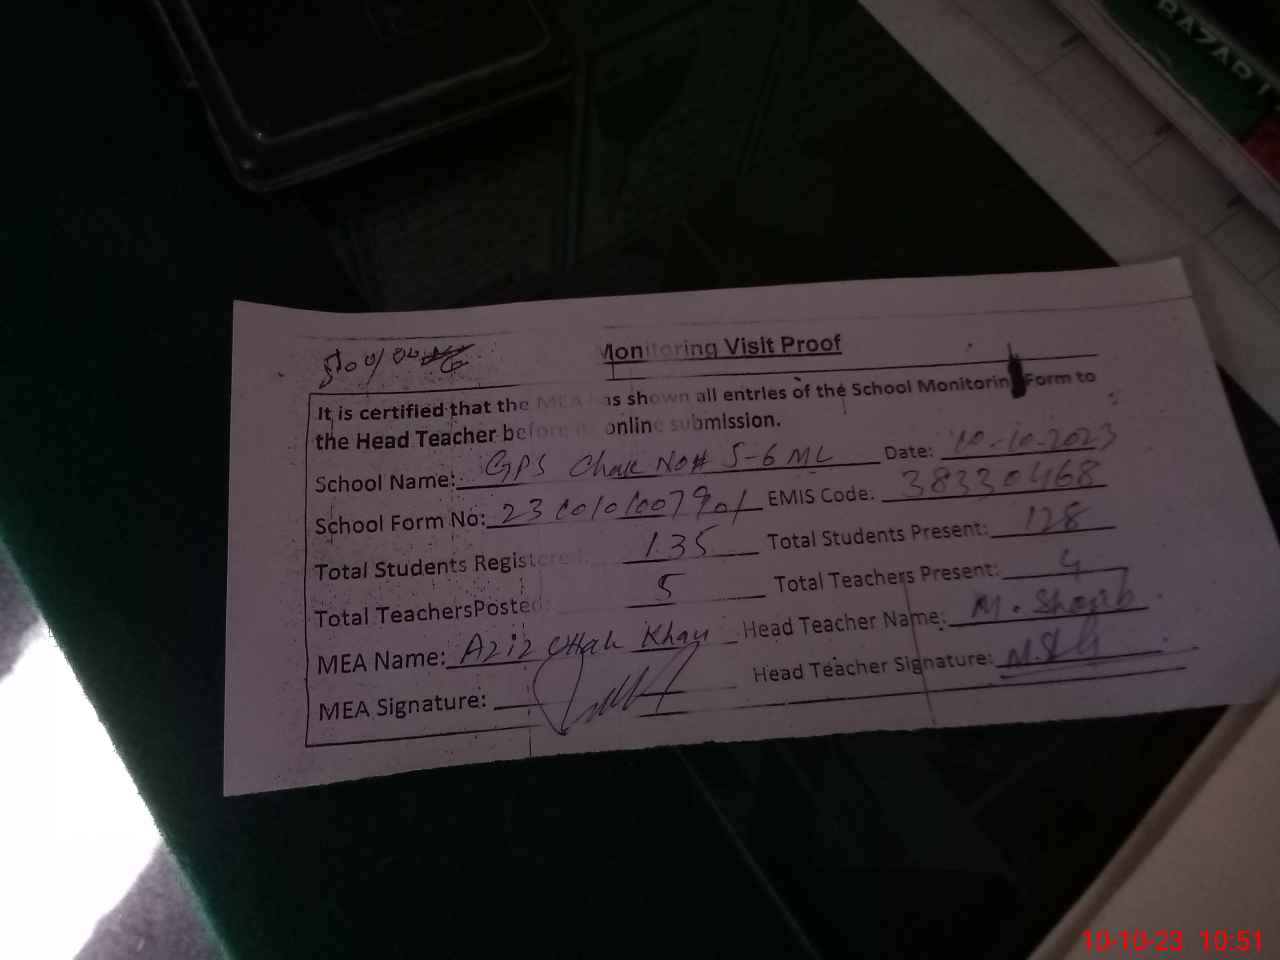 BAZAR T
Monitoring Visit Proof
It is certified that the MEA has shown all entries of the School Monitorin Form to
the Head Teacher before its online submission.
School Name: GPS Chak No# 5-6 ML Date: 10-10-2023
School Form No: EMIS Code: 38330468
Total Students Registered: 135 Total Students Present: 128
Total TeachersPosted: 5 Total Teachers Present: 4
MEA Name: Aziz Ullah Khan Head Teacher Name: M. Shoaib
MEA Signature: Head Teacher Signature:
10-10-23 10:51